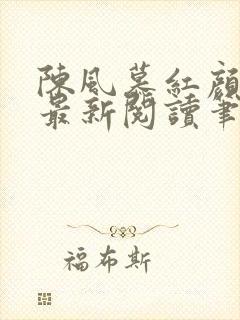 陳風慕紅顏
最新閱讀筆
福布斯